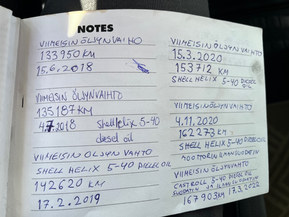 NOTES
VIIMEISIN ÖLJYNVAIHTO
133950 KM
15.6.2018
VIIMEISIN ÖLJYNVAIHTO
135187 KM
4.7.2018 Shell Helix 5-40
diesel oil
VIIMEISIN ÖLJYNVAIHTO
SHELL HELIX 5-40 DIESEL OIL
142620 KM
17.2.2019
VIIMEISIN ÖLJYNVAIHTO
15.3.2020
153712 KM
SHELL HELIX 5-40 DIESEL
OIL
VIIMEISIN ÖLJYNVAIHTO
4.11.2020
162273 KM
SHELL HELIX 5-40 DIESEL OIL
VIIMEISIN ÖLJYNVAIHTO
CASTROLL 5-40 DIESEL OIL
167903 KM 17.3.2022